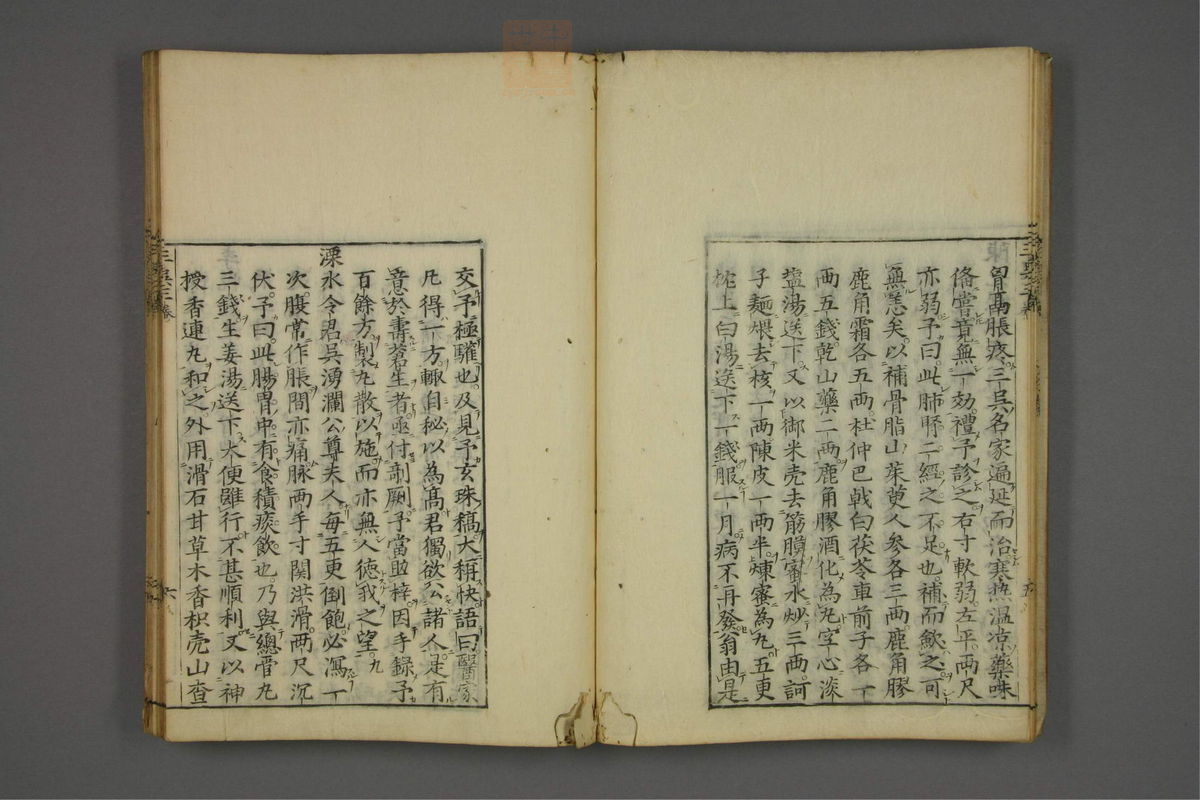 胃鬲脹疼三吳名家遍延而治寒热温凉藥味
俻嘗竟無一効禮予診之右寸軟弱左平兩尺
亦弱予曰此肺腎二經之不足也補而歛之可
無恙矣以補骨脂山茱萸人參各三兩鹿角膠
鹿角霜各五兩杜仲巴戟白茯苓車前子各一
兩五錢乾山藥二兩鹿角膠酒化為丸空心淡
塩湯送下又以御米壳去筋膜蜜水炒三兩訶
子麵煨去核一兩陳皮一兩半煉蜜為丸五更
枕上白湯送下一錢服一月病不再發翁由是
交予極驩也及見予玄珠稿大稱快語曰醫家
凡得一方輙自秘以為高君獨欲公諸人是有
意於壽蒼生者亟付剞劂予當助梓因手錄予
百餘方製丸散以施而亦無人徳我之望
溧水令君吳湧瀾公尊夫人每五更倒飽必瀉一
次腹常作脹間亦痛脉兩手寸関洪滑兩尺沉
伏予曰此腸胃中有食積痰飲也乃與總管丸
三錢生姜湯送下大便雖行不甚順利又以神
授香連丸和之外用滑石甘草木香枳壳山查
六